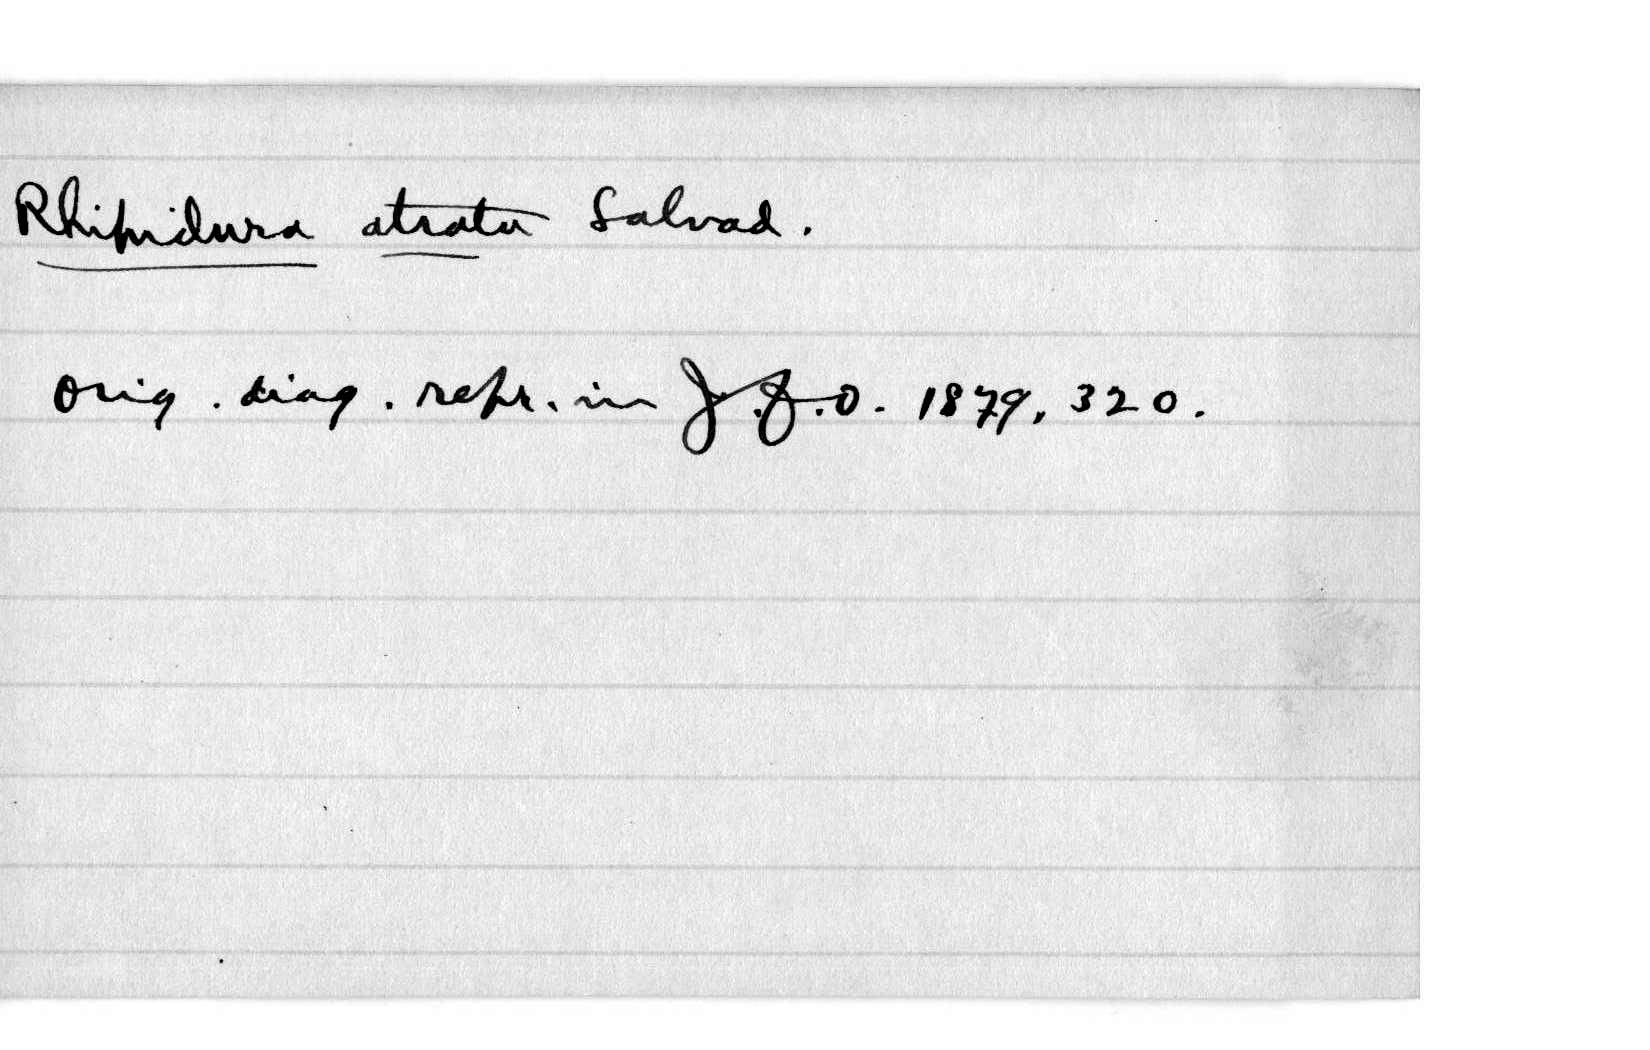 Rhipidura atrata Salvad.
Orig. diag. repr. in J.f.O. 1879, 320.